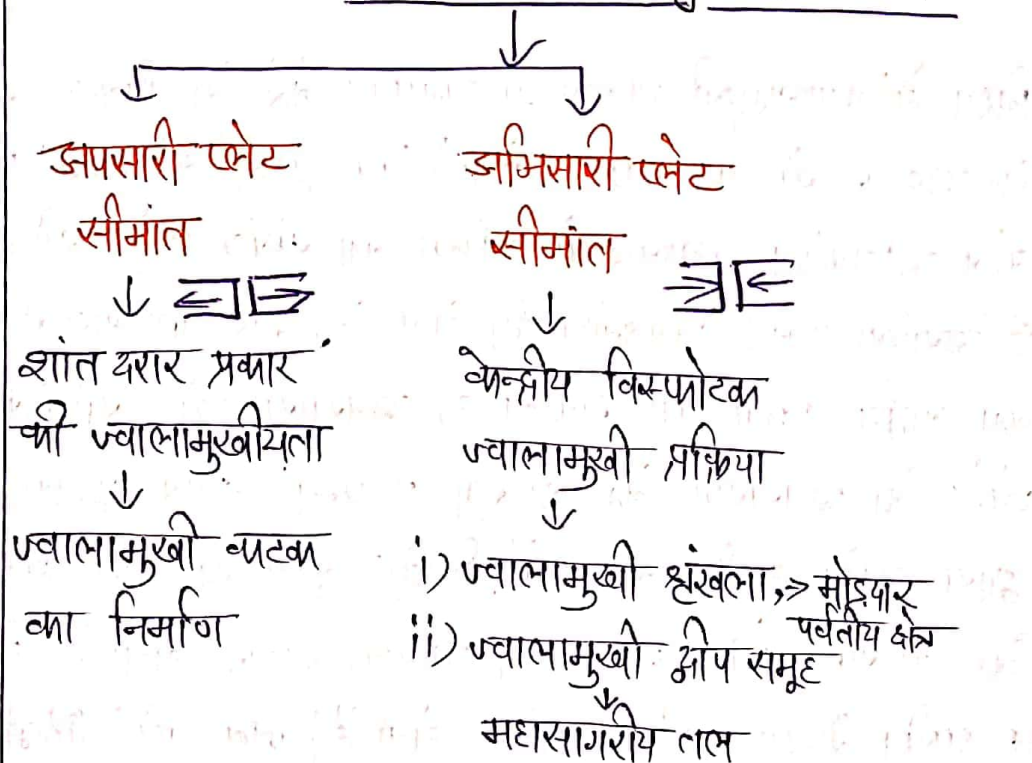 अपसारी प्लेट
सीमांत
शांत दरार प्रकार
की ज्वालामुखीयता
ज्वालामुखी कटक
का निर्माण
अभिसारी प्लेट
सीमांत
केन्द्रीय विस्फोटक
ज्वालामुखी प्रक्रिया
i) ज्वालामुखी श्रृंखला, → मोड़दार
पर्वतीय क्षेत्र
ii) ज्वालामुखी द्वीप समूह
महासागरीय तल